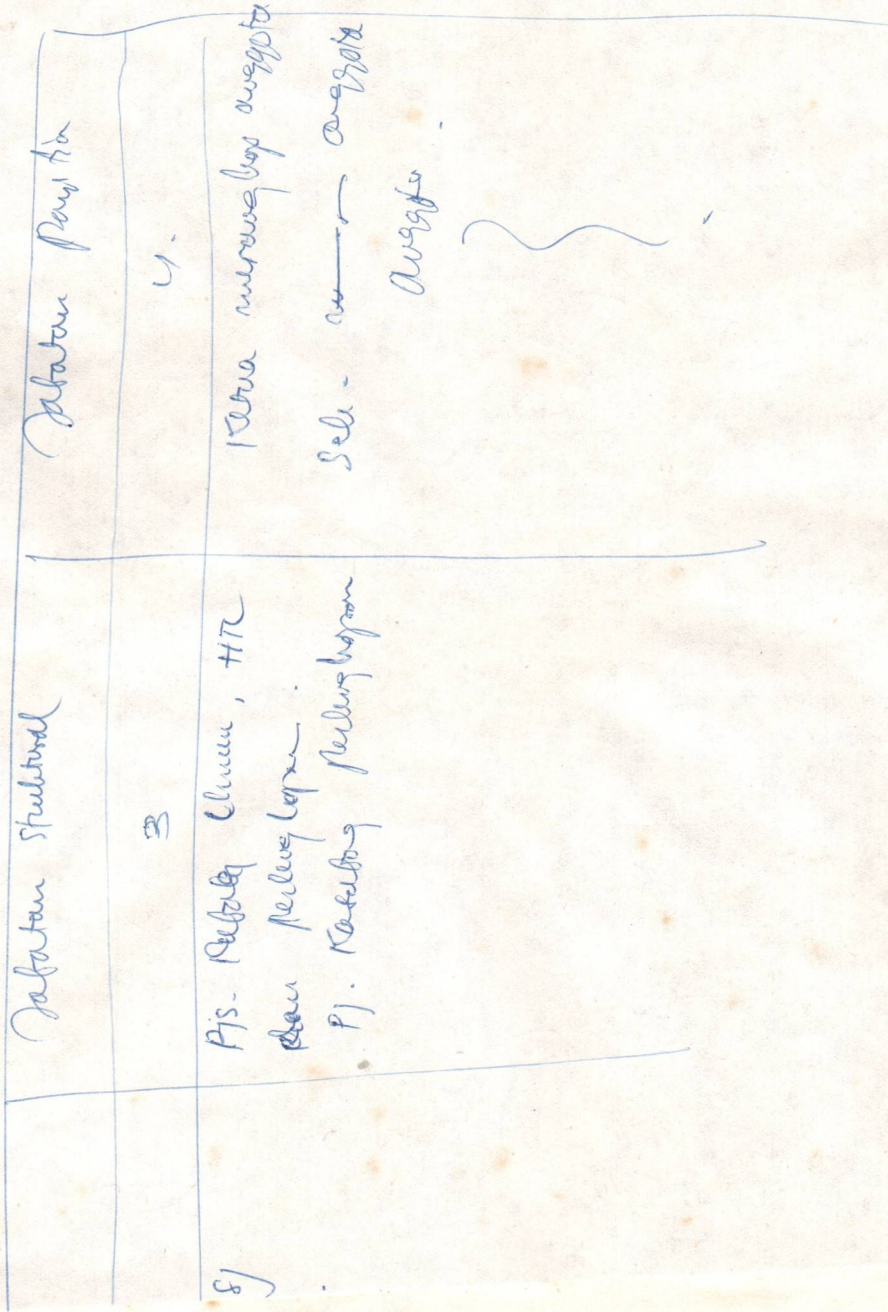 Jabatan Struktural
Jabatan Panitia
3
4.
8)
Pjs. Kabag Umum, HR
dan perlengkapan.
Pj. Kasubag perlengkapan
Ketua merangkap anggota
Sek. anggota
anggota